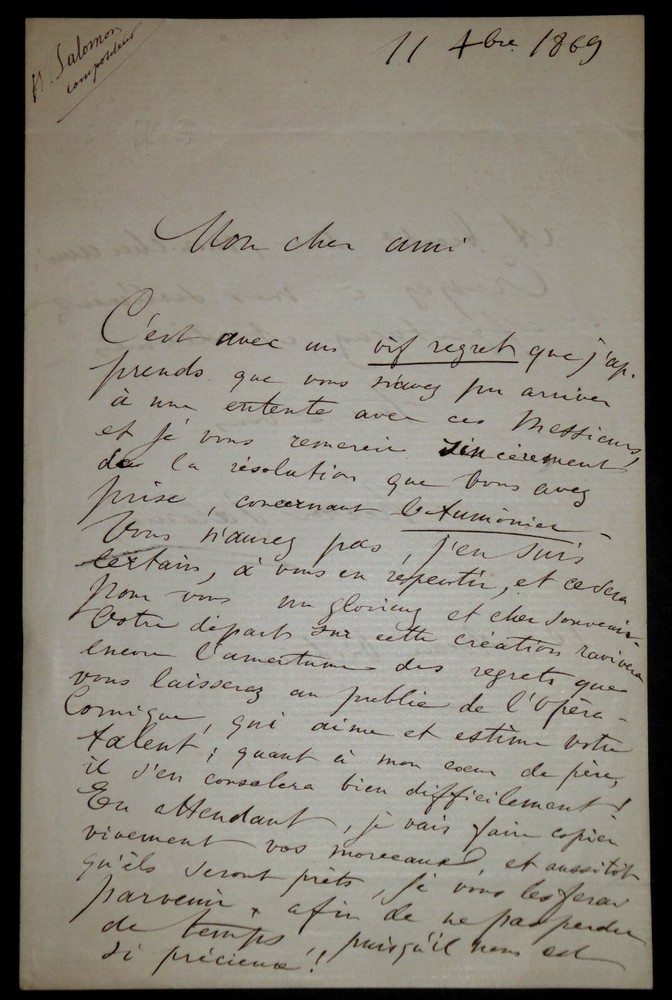 H. Salomon
compositeur
11 7bre 1869
Mon cher ami
C'est avec un vif regret que j'ap-
prends que vous n'avez pu arriver
à une entente avec ces Messieurs,
et je vous remercie sincèrement
de la résolution que vous avez
prise, concernant l'Aumônier.
Vous n'aurez pas, j'en suis
certain, à vous en repentir, et ce sera
pour vous un glorieux et cher souvenir.
Votre départ sur cette création ravivera
encore l'amertume des regrets que
vous laisserez au public de l'Opéra-
Comique, qui aime et estime votre
talent; quant à mon cœur de père,
il s'en consolera bien difficilement!
En attendant, je vais faire copier
vivement vos morceaux et aussitôt
qu'ils seront prêts, je vous les ferai
parvenir, afin de ne pas perdre
de temps, puisqu'il nous est
si précieux!